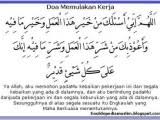 Doa Memulakan Kerja
اَللّٰهُمَّ إِنِّيْ أَسْئَلُكَ مِنْ خَيْرِ هَذَا الْعَمَلِ وَخَيْرِ مَا فِيْهِ
وَأَعُوْذُ بِكَ مِنْ شَرِّ هَذَا الْعَمَلِ وَشَرِّ مَا فِيْهِ إِنَّكَ
عَلَى كُلِّ شَيْئٍ قَدِيْرٌ
Ya Allah, aku memohon padaMu kebaikan pekerjaan ini dan segala
kebaikan yang ada di dalamnya, dan aku berlindung padaMu
daripada kejahatan kerja ini dan segala keburukan yang ada di dalamnya.
Sesungguhnya di atas segala sesuatu itu Engkaulah yang
Maha Berkuasa menentukannya.